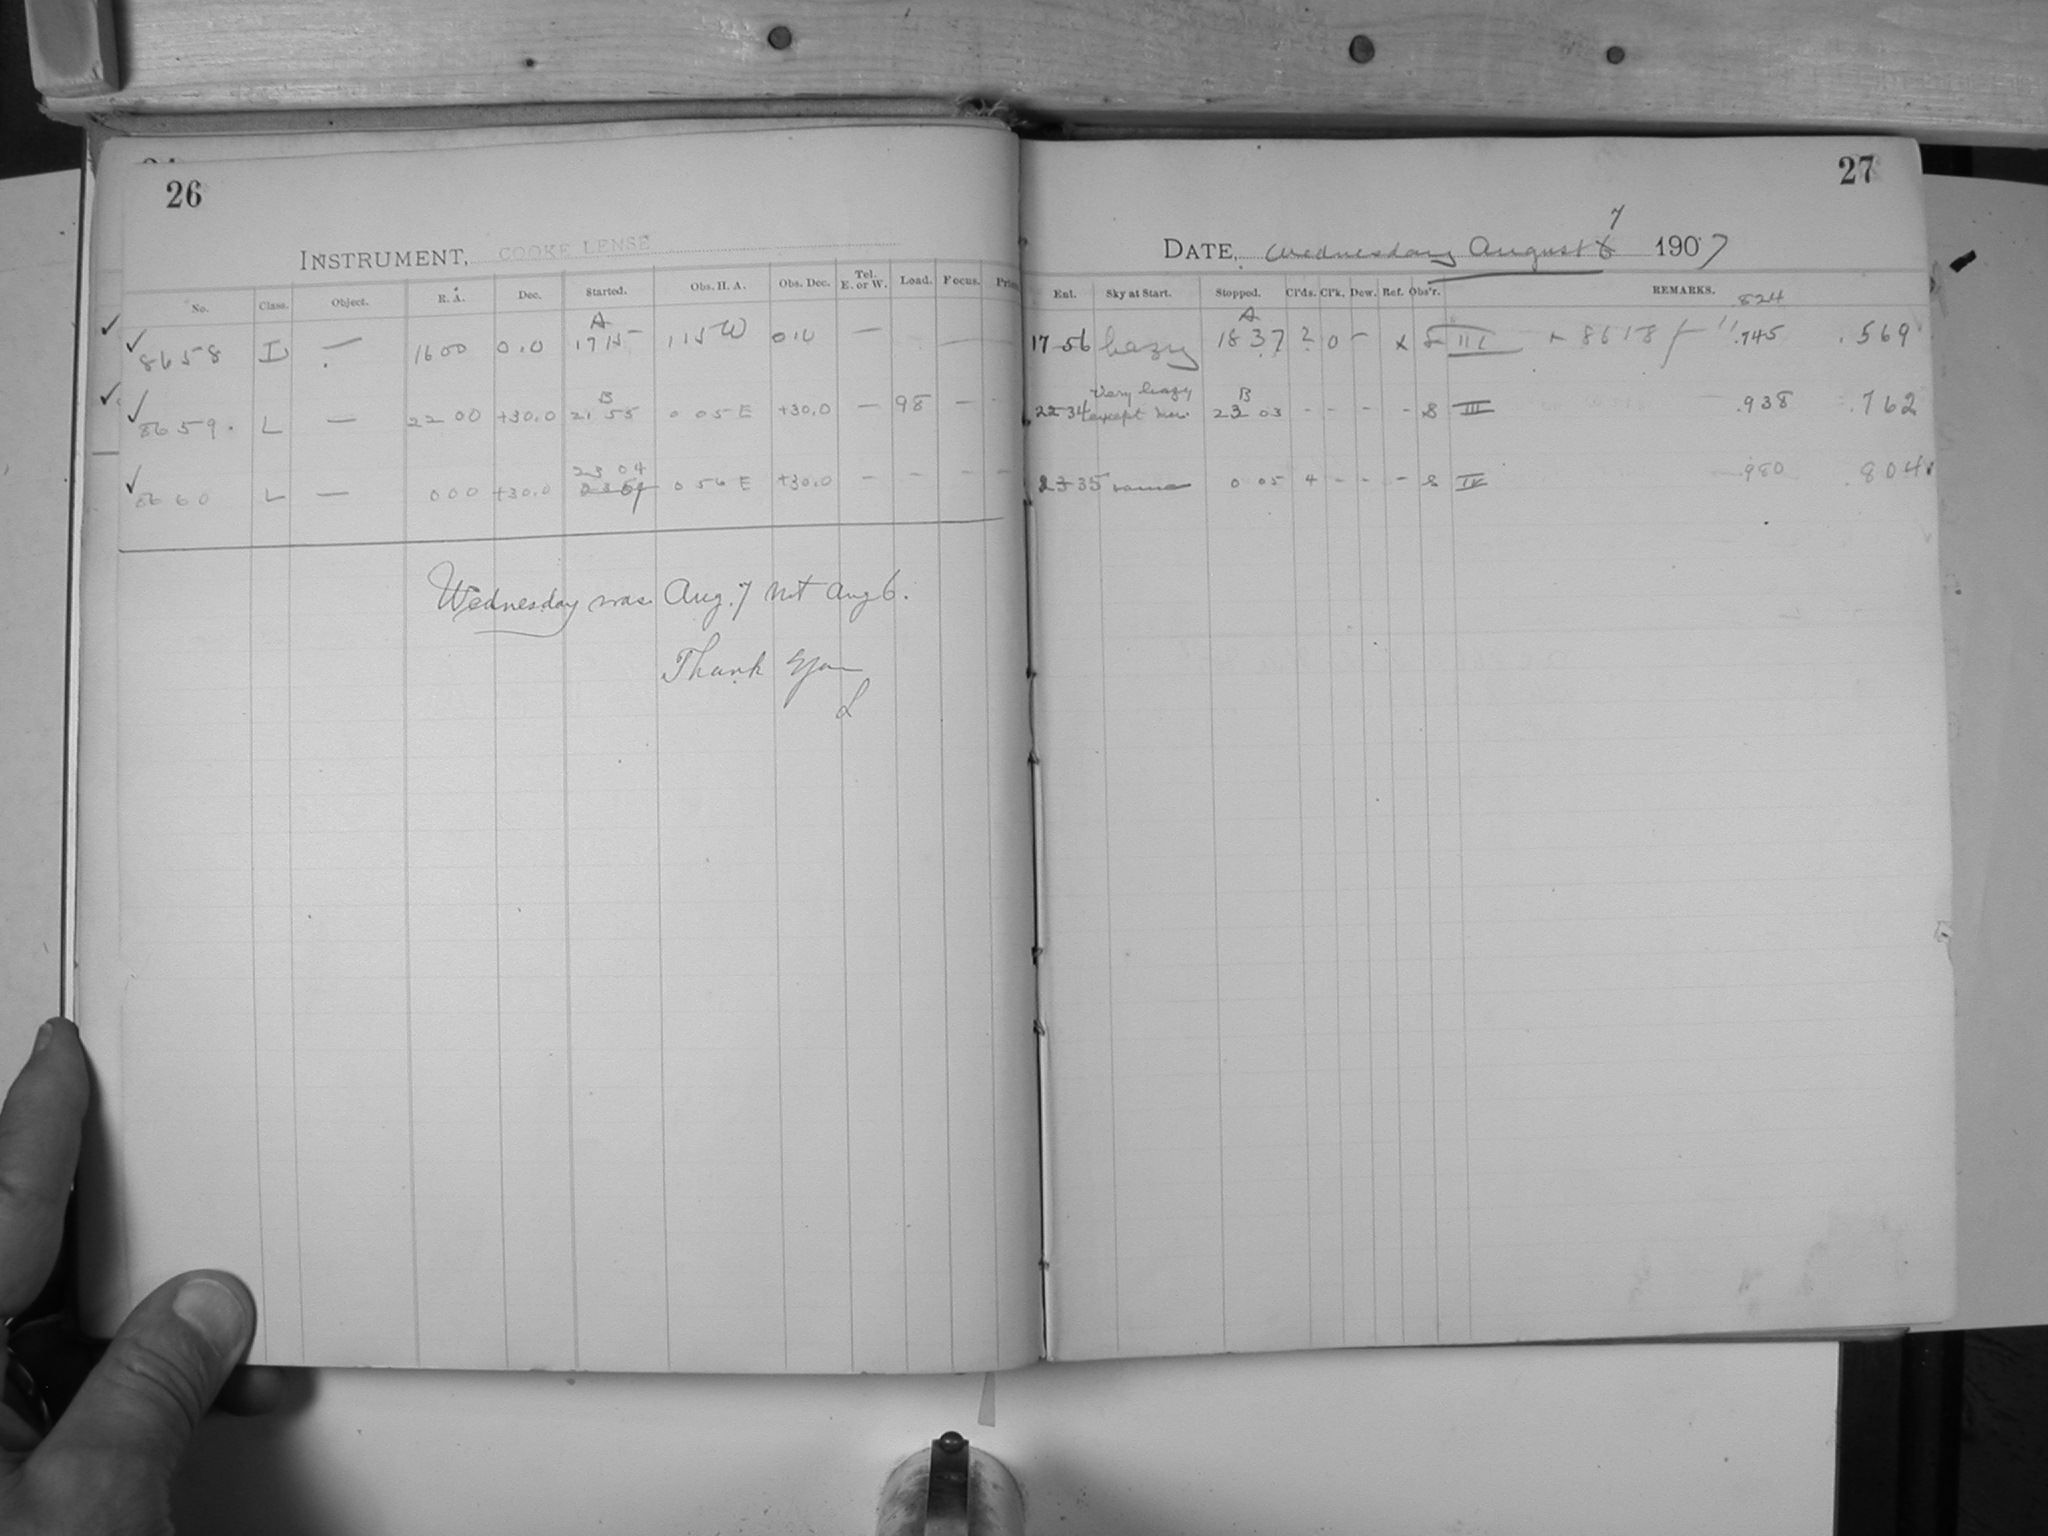 26
INSTRUMENT, COOKE LENSE
No. Class. Object. R. A. Dec. Started. Obs. H. A. Obs. Dec. Tel. E. or W. Load. Focus.
A
8658 — 1600 0.0 1715 115 W 0.0 —
B
8659. L — 22 00 +30.0 21 55 0 05 E +30.0 — 98 —
23 04
8660 L — 0 00 +30.0 0 56 E +30.0 — - - -
Wednesday was Aug. 7 not Aug 6.
Thank you
L
27
7
DATE, Wednesday August 6 1907
Ent. Sky at Start. Stopped. Cl'ds. Cl'k. Dew. Ref. Obs'r. REMARKS.
824
A
17 56 hazy 18 37 2 0 - x III 8618 .745 .569
very hazy B
22 34 except 23 03 - - - - S III .938 .762
23 35 same 0 05 4 - - - S IV .980 .804